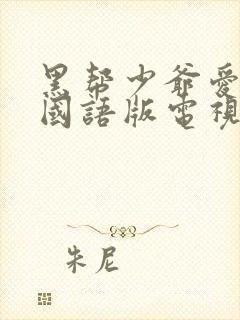 黑帮少爷愛
國語版電視
朱尼